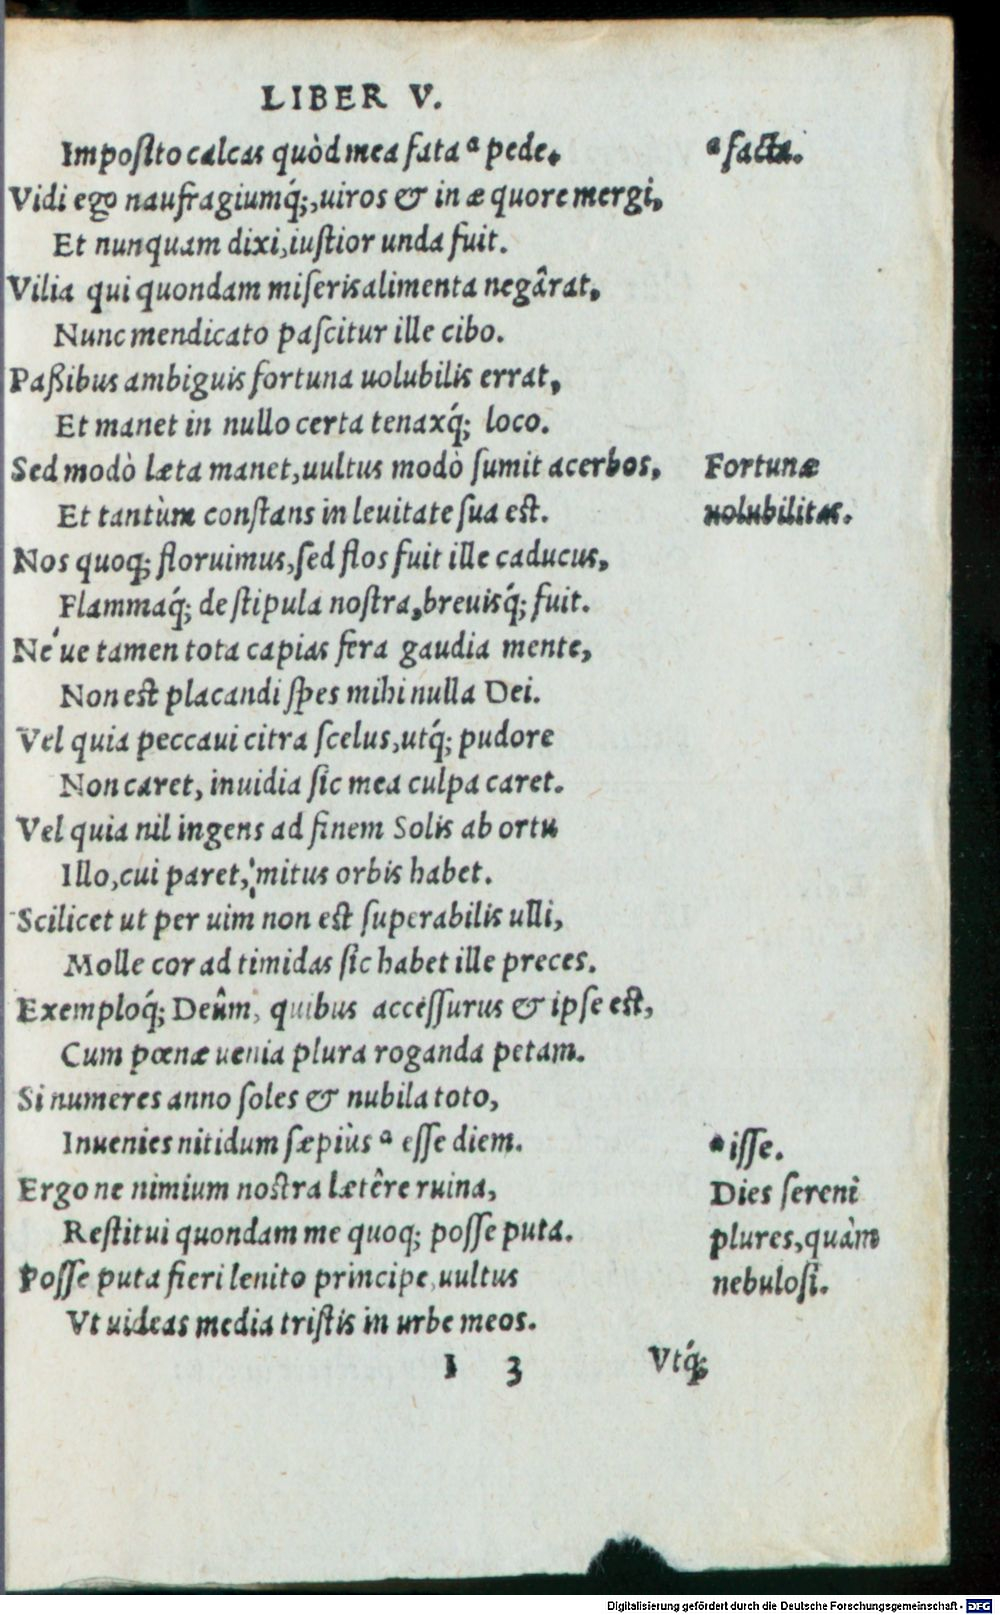 LIBER V.
Imposito calcas quòd mea fata ᵃ pede.
ᵃ facta.
Vidi ego naufragiumq́;, uiros & in æquore mergi,
Et nunquam dixi, iustior unda fuit.
Vilia qui quondam miseris alimenta negârat,
Nunc mendicato pascitur ille cibo.
Paßibus ambiguis fortuna uolubilis errat,
Et manet in nullo certa tenaxq́; loco.
Sed modò læta manet, uultus modò sumit acerbos,
Fortunæ
Et tantùm constans in leuitate sua est.
uolubilitas.
Nos quoq; floruimus, sed flos fuit ille caducus,
Flammaq́; de stipula nostra, breuisq́; fuit.
Né ue tamen tota capias fera gaudia mente,
Non est placandi spes mihi nulla Dei.
Vel quia peccaui citra scelus, utq́; pudore
Non caret, inuidia sic mea culpa caret.
Vel quia nil ingens ad finem Solis ab ortu
Illo, cui paret, mitus orbis habet.
Scilicet ut per uim non est superabilis ulli,
Molle cor ad timidas sic habet ille preces.
Exemploq́; Deûm, quibus accessurus & ipse est,
Cum pœnæ uenia plura roganda petam.
Si numeres anno soles & nubila toto,
Inuenies nitidum sæpiùs ᵃ esse diem.
ᵃ isse.
Ergo ne nimium nostra lætêre ruina,
Dies sereni
Restitui quondam me quoq; posse puta.
plures, quàm
Posse puta fieri lenito principe, uultus
nebulosi.
Vt uideas media tristis in urbe meos.
I 3
Vtq́;
Digitalisierung gefördert durch die Deutsche Forschungsgemeinschaft - DFG